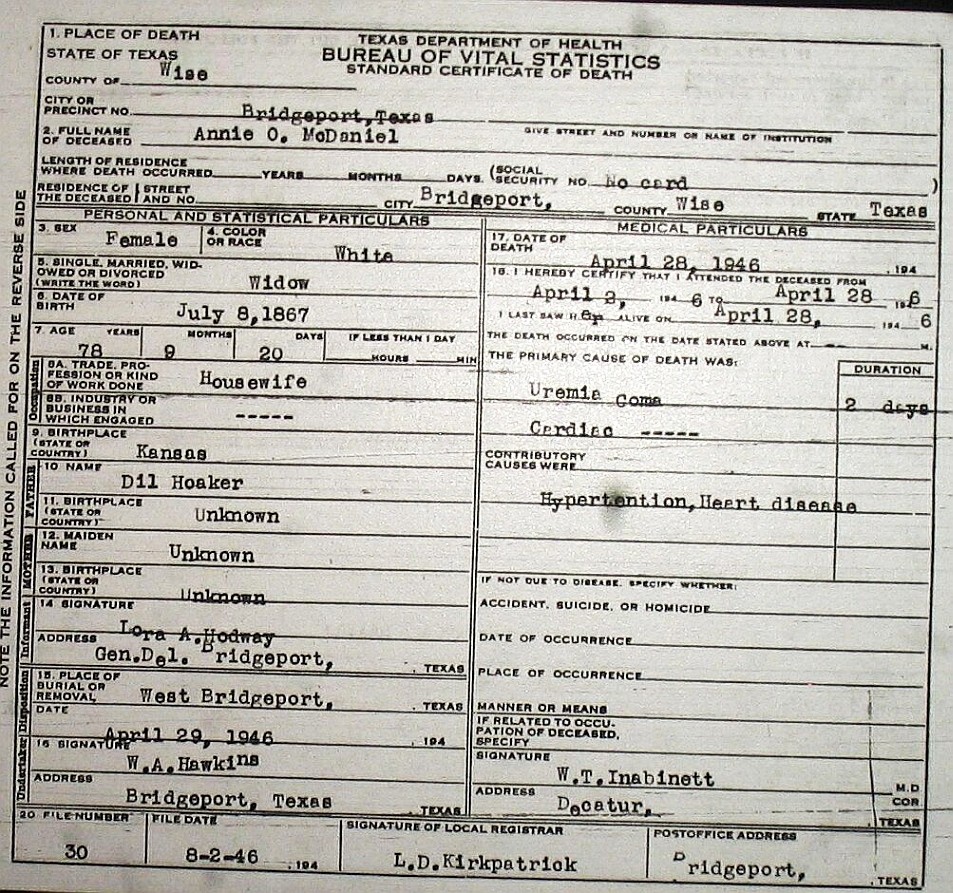 TEXAS DEPARTMENT OF HEALTH
BUREAU OF VITAL STATISTICS
STANDARD CERTIFICATE OF DEATH
1. PLACE OF DEATH
STATE OF TEXAS
COUNTY OF Wise
CITY OR
PRECINCT NO. Bridgeport, Texas
GIVE STREET AND NUMBER OR NAME OF INSTITUTION
2. FULL NAME
OF DECEASED Annie O. McDaniel
LENGTH OF RESIDENCE
WHERE DEATH OCCURRED YEARS MONTHS DAYS. (SOCIAL SECURITY NO. No card )
RESIDENCE OF THE DECEASED STREET AND NO. CITY Bridgeport, COUNTY Wise STATE Texas
PERSONAL AND STATISTICAL PARTICULARS
3. SEX Female 4. COLOR OR RACE White
5. SINGLE, MARRIED, WID-
OWED OR DIVORCED
(WRITE THE WORD) Widow
6. DATE OF
BIRTH July 8,1867
7. AGE YEARS MONTHS DAYS IF LESS THAN 1 DAY
78 9 20 HOURS MIN
Occupation
8A. TRADE, PRO-
FESSION OR KIND
OF WORK DONE Housewife
8B. INDUSTRY OR
BUSINESS IN
WHICH ENGAGED -----
9. BIRTHPLACE
(STATE OR
COUNTRY) Kansas
FATHER
10 NAME
Dil Hoaker
11. BIRTHPLACE
(STATE OR
COUNTRY) Unknown
MOTHER
12. MAIDEN
NAME Unknown
13. BIRTHPLACE
(STATE OR
COUNTRY) Unknown
Informant
14 SIGNATURE
Lora A.Hodway
ADDRESS
Gen.Del. Bridgeport, , TEXAS
Disposition
15. PLACE OF
BURIAL OR
REMOVAL West Bridgeport, , TEXAS
DATE
April 29, 1946 , 194
Undertaker
16 SIGNATURE
W.A.Hawkins
ADDRESS
Bridgeport, Texas , TEXAS
MEDICAL PARTICULARS
17. DATE OF
DEATH April 28, 1946 , 194
18. I HEREBY CERTIFY THAT I ATTENDED THE DECEASED FROM
April 2, 194 6 TO April 28 194 6
I LAST SAW H er ALIVE ON April 28, 194 6
THE DEATH OCCURRED ON THE DATE STATED ABOVE AT --- M.
THE PRIMARY CAUSE OF DEATH WAS: DURATION
Uremia Coma 2 days
Cardiac -----
CONTRIBUTORY
CAUSES WERE
Hypertention,Heart disease
IF NOT DUE TO DISEASE, SPECIFY WHETHER:
ACCIDENT, SUICIDE, OR HOMICIDE
DATE OF OCCURRENCE
PLACE OF OCCURRENCE
MANNER OR MEANS
IF RELATED TO OCCU-
PATION OF DECEASED,
SPECIFY
SIGNATURE
W.T.Inabinett M.D
ADDRESS Decatur, COR.
, TEXAS
20 FILE NUMBER FILE DATE SIGNATURE OF LOCAL REGISTRAR POSTOFFICE ADDRESS
30 8-2-46 , 194 L.D.Kirkpatrick Bridgeport, , TEXAS
NOTE THE INFORMATION CALLED FOR ON THE REVERSE SIDE